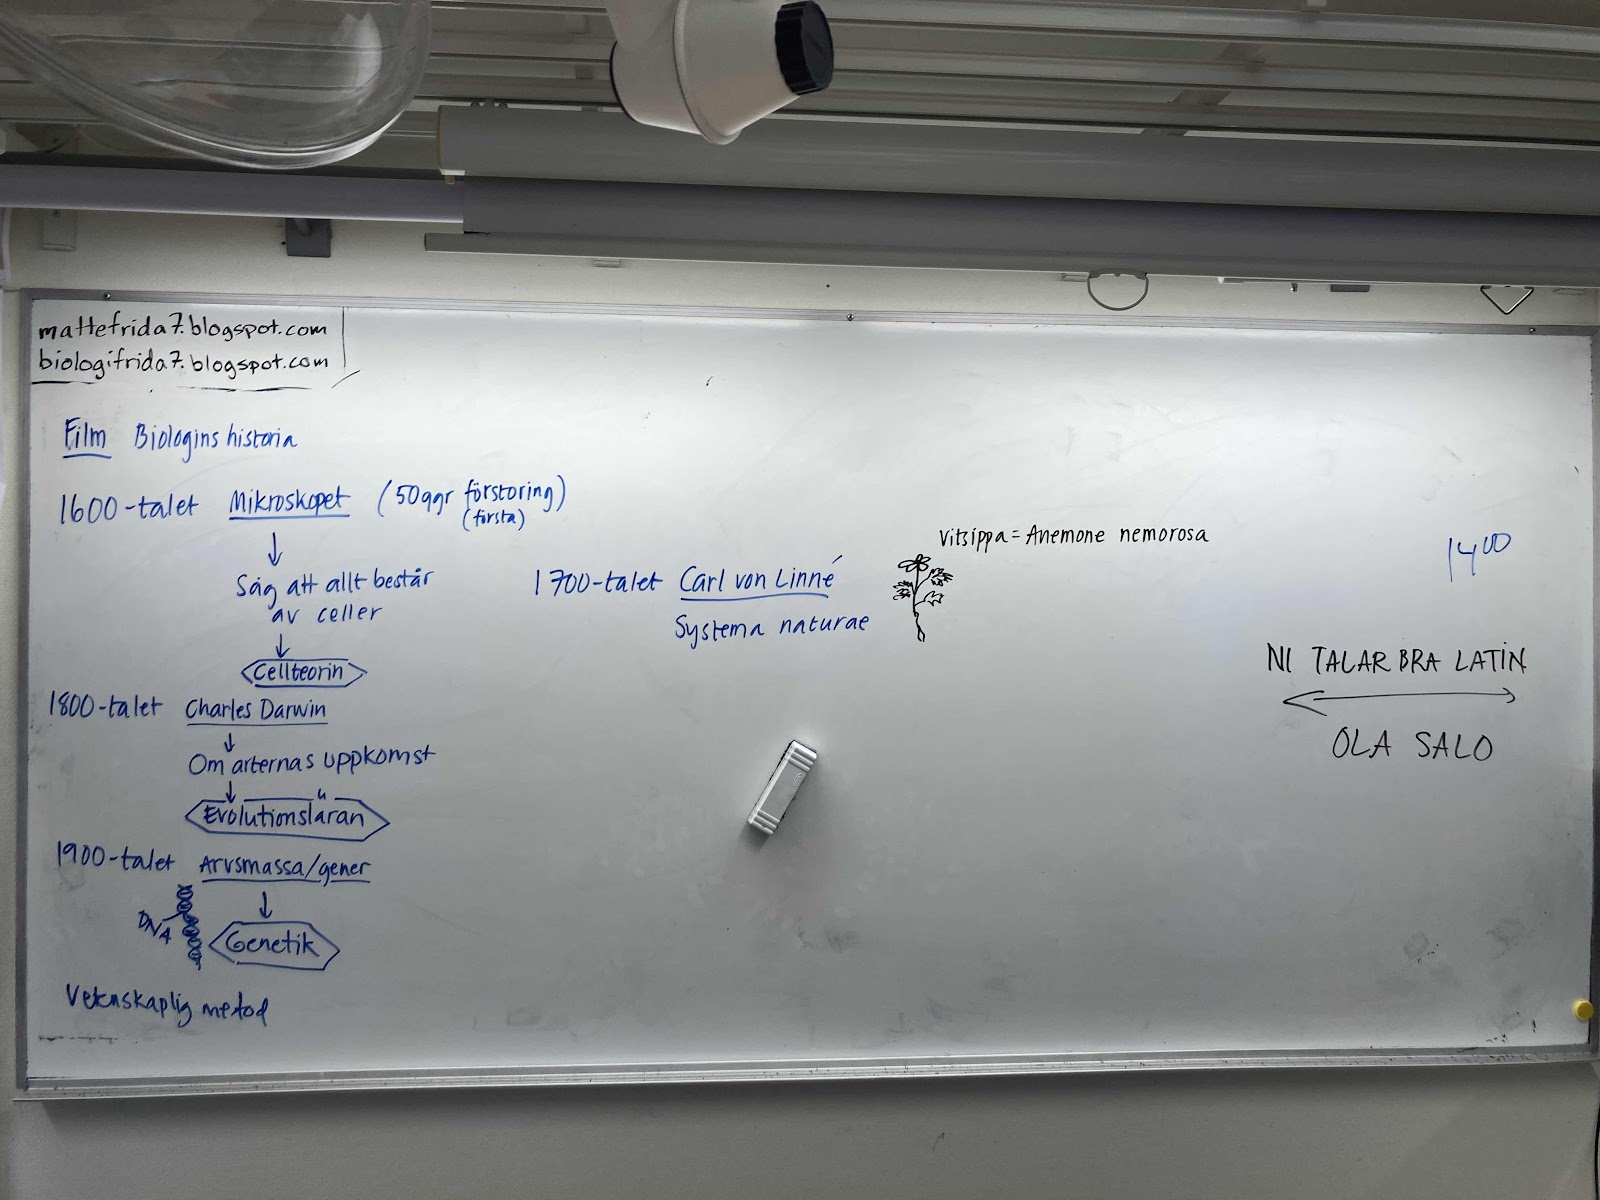 mattefrida7.blogspot.com
biologifrida7.blogspot.com
Film Biologins historia
1600-talet Mikroskopet (50ggr förstoring)
(första)
Såg att allt består
av celler
Cellteorin
1700-talet Carl von Linné
Systema naturae
Vitsippa = Anemone nemorosa
1800-talet Charles Darwin
Om arternas uppkomst
Evolutionsläran
1900-talet Arvsmassa/gener
DNA
Genetik
Vetenskaplig metod
14 00
NI TALAR BRA LATIN
OLA SALO